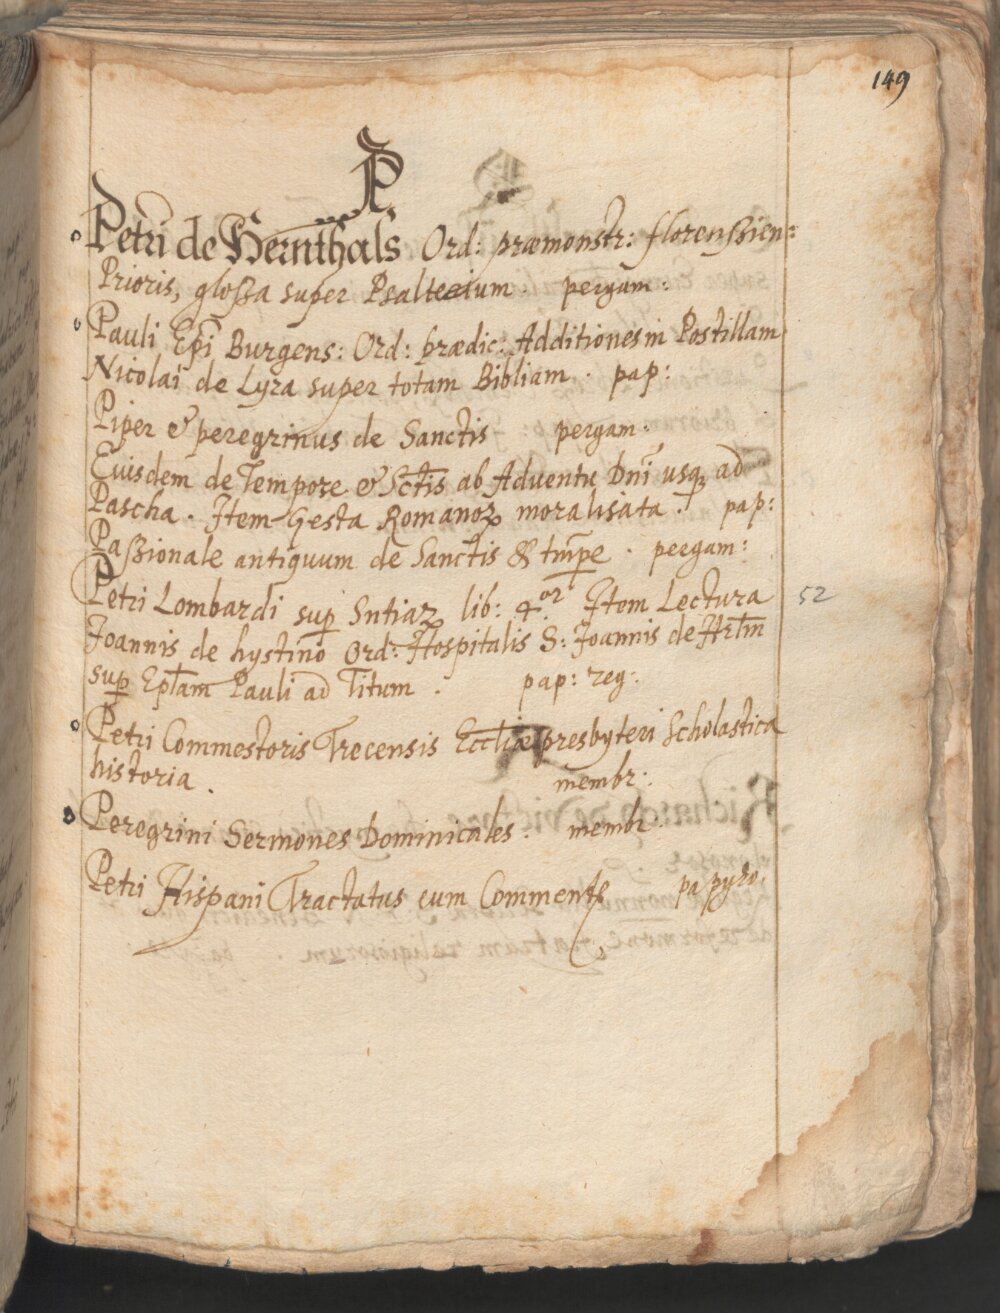 149
P
Petri de Hernthals Ord: præmonstr: florenßien=
Prioris, gloßa super Psalterium pergam:
Pauli Epi Burgens: Ord: prædic: Additiones in Postillam
Nicolai de Lyra super totam Bibliam. pap:
Piper & peregrinus de Sanctis pergam.
Euisdem de Tempore & Sctis ab Adventu Dni usq ad
Pascha. Item Gesta Romanoꝝ moralisata. pap:
Paßionale antiquum de Sanctis & tmpe. pergam:
Petri Lombardi sup Sntiaꝝ lib: 4.or Item Lectura
52
Joannis de hystino Ord: Hospitalis S: Joannis de
sup Eplam Pauli ad Titum. pap: reg:
Petri Commestoris Trecensis Eccliæ presbyteri Scholastica
historia. membr:
Peregrini Sermones Dominicales. membr.
Petri Hispani Tractatus cum papyro.